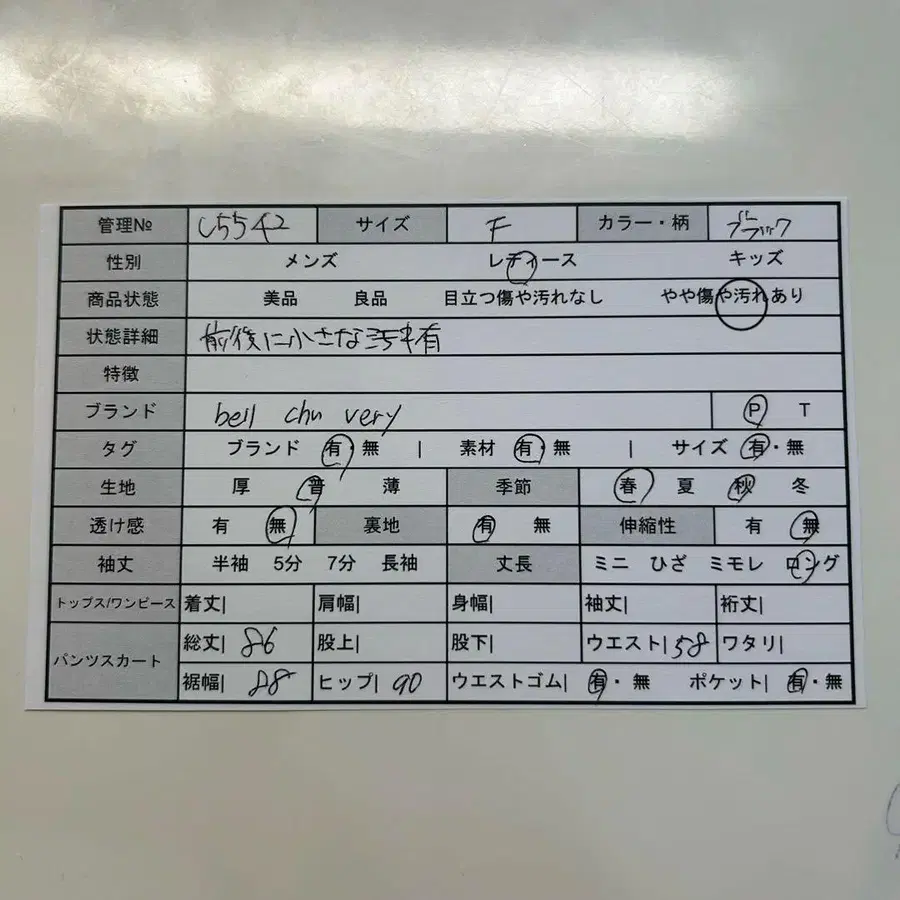 管理№ L5542 サイズ F カラー・柄 ブラック
性別 メンズ レディース キッズ
商品状態 美品 良品 目立つ傷や汚れなし やや傷や汚れあり
状態詳細 前後に小さな汚れ有
特徴
ブランド bell chu very P T
タグ ブランド 有・無 | 素材 有・無 | サイズ 有・無
生地 厚 普 薄 季節 春 夏 秋 冬
透け感 有 無 裏地 有 無 伸縮性 有 無
袖丈 半袖 5分 7分 長袖 丈長 ミニ ひざ ミモレ ロング
トップス/ワンピース 着丈| 肩幅| 身幅| 袖丈| 裄丈|
パンツスカート 総丈| 86 股上| 股下| ウエスト| 58 ワタリ|
裾幅| 88 ヒップ| 90 ウエストゴム| 有・無 ポケット| 有・無